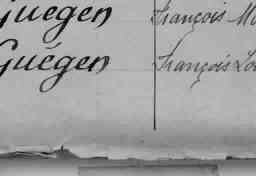 Guegen François
Guégen François